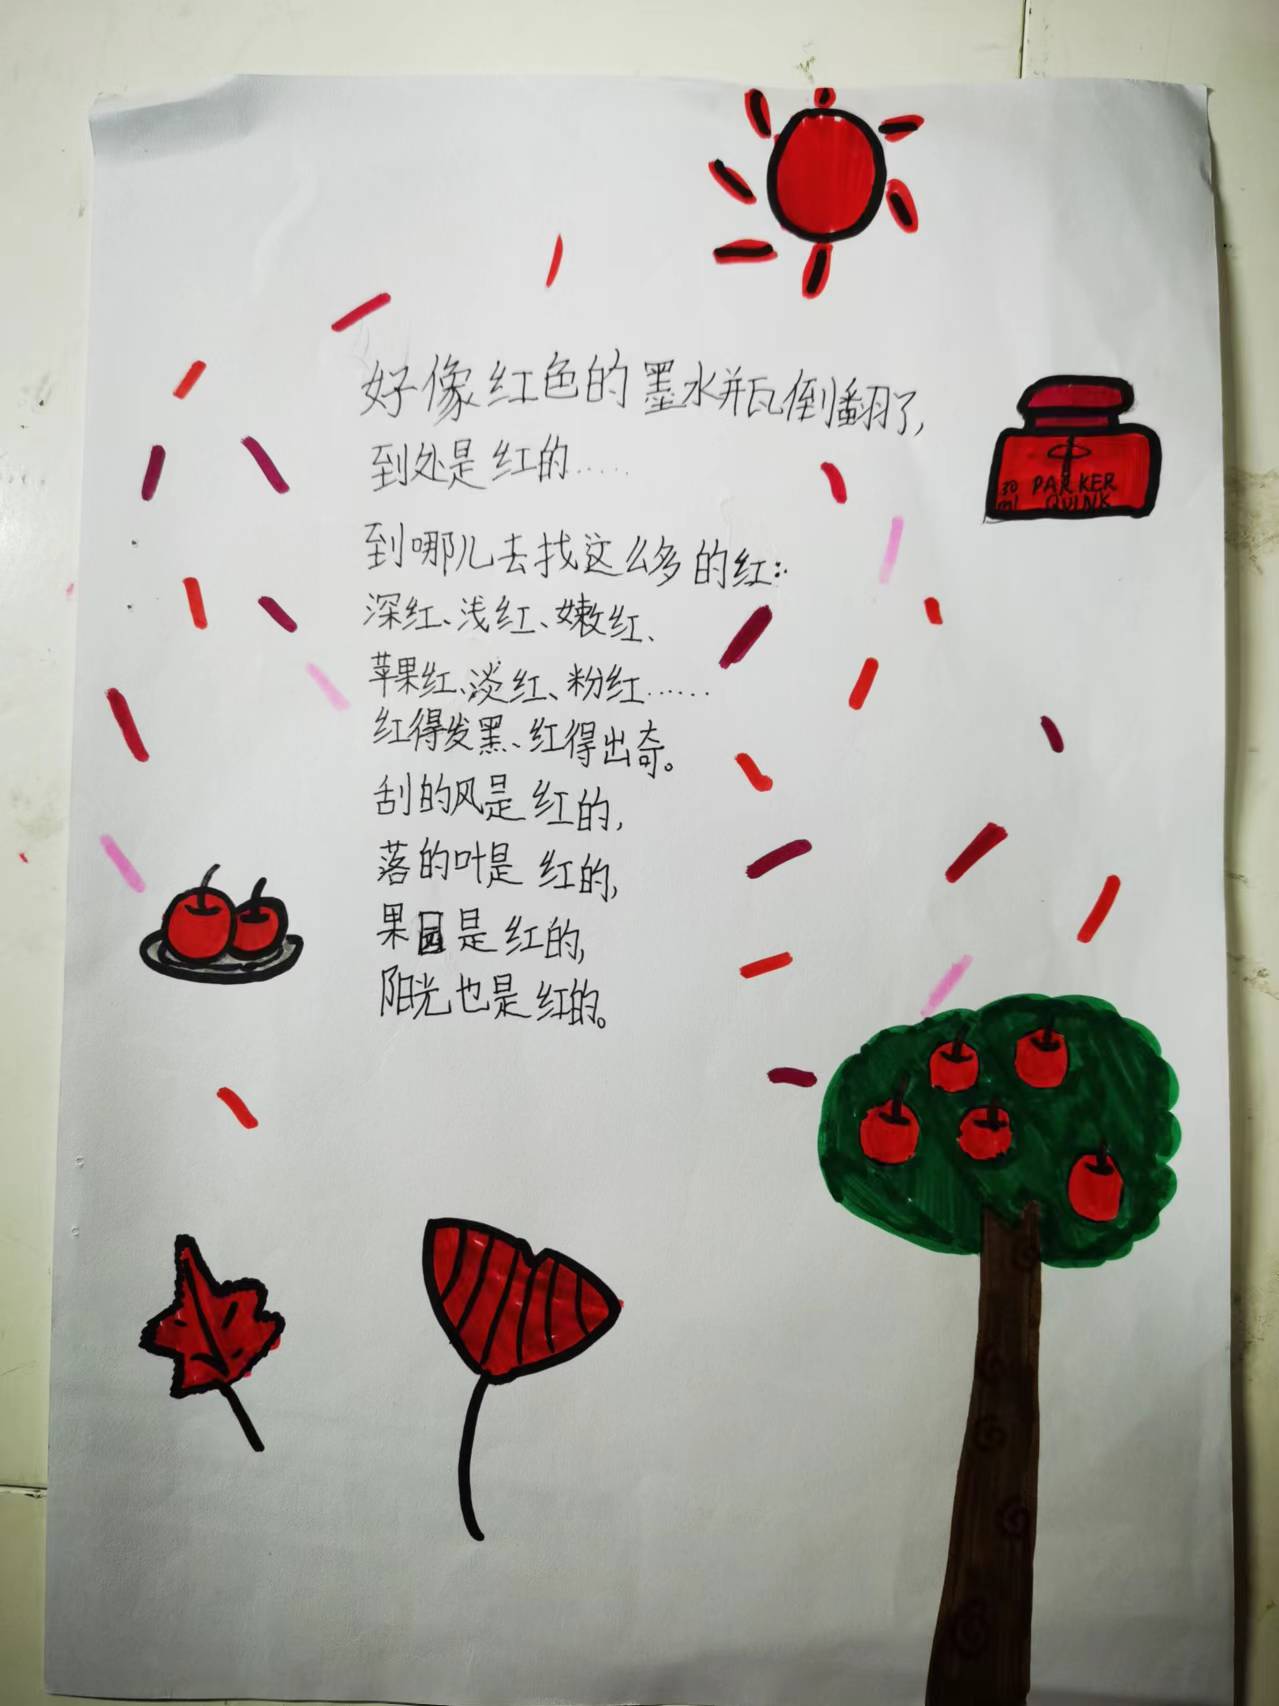 好像红色的墨水瓶倒翻了,
到处是红的……
到哪儿去找这么多的红:
深红、浅红、嫩红、
苹果红、淡红、粉红……
红得发黑、红得出奇。
刮的风是红的,
落的叶是红的,
果园是红的,
阳光也是红的。
30 PARKER
ml QUINK